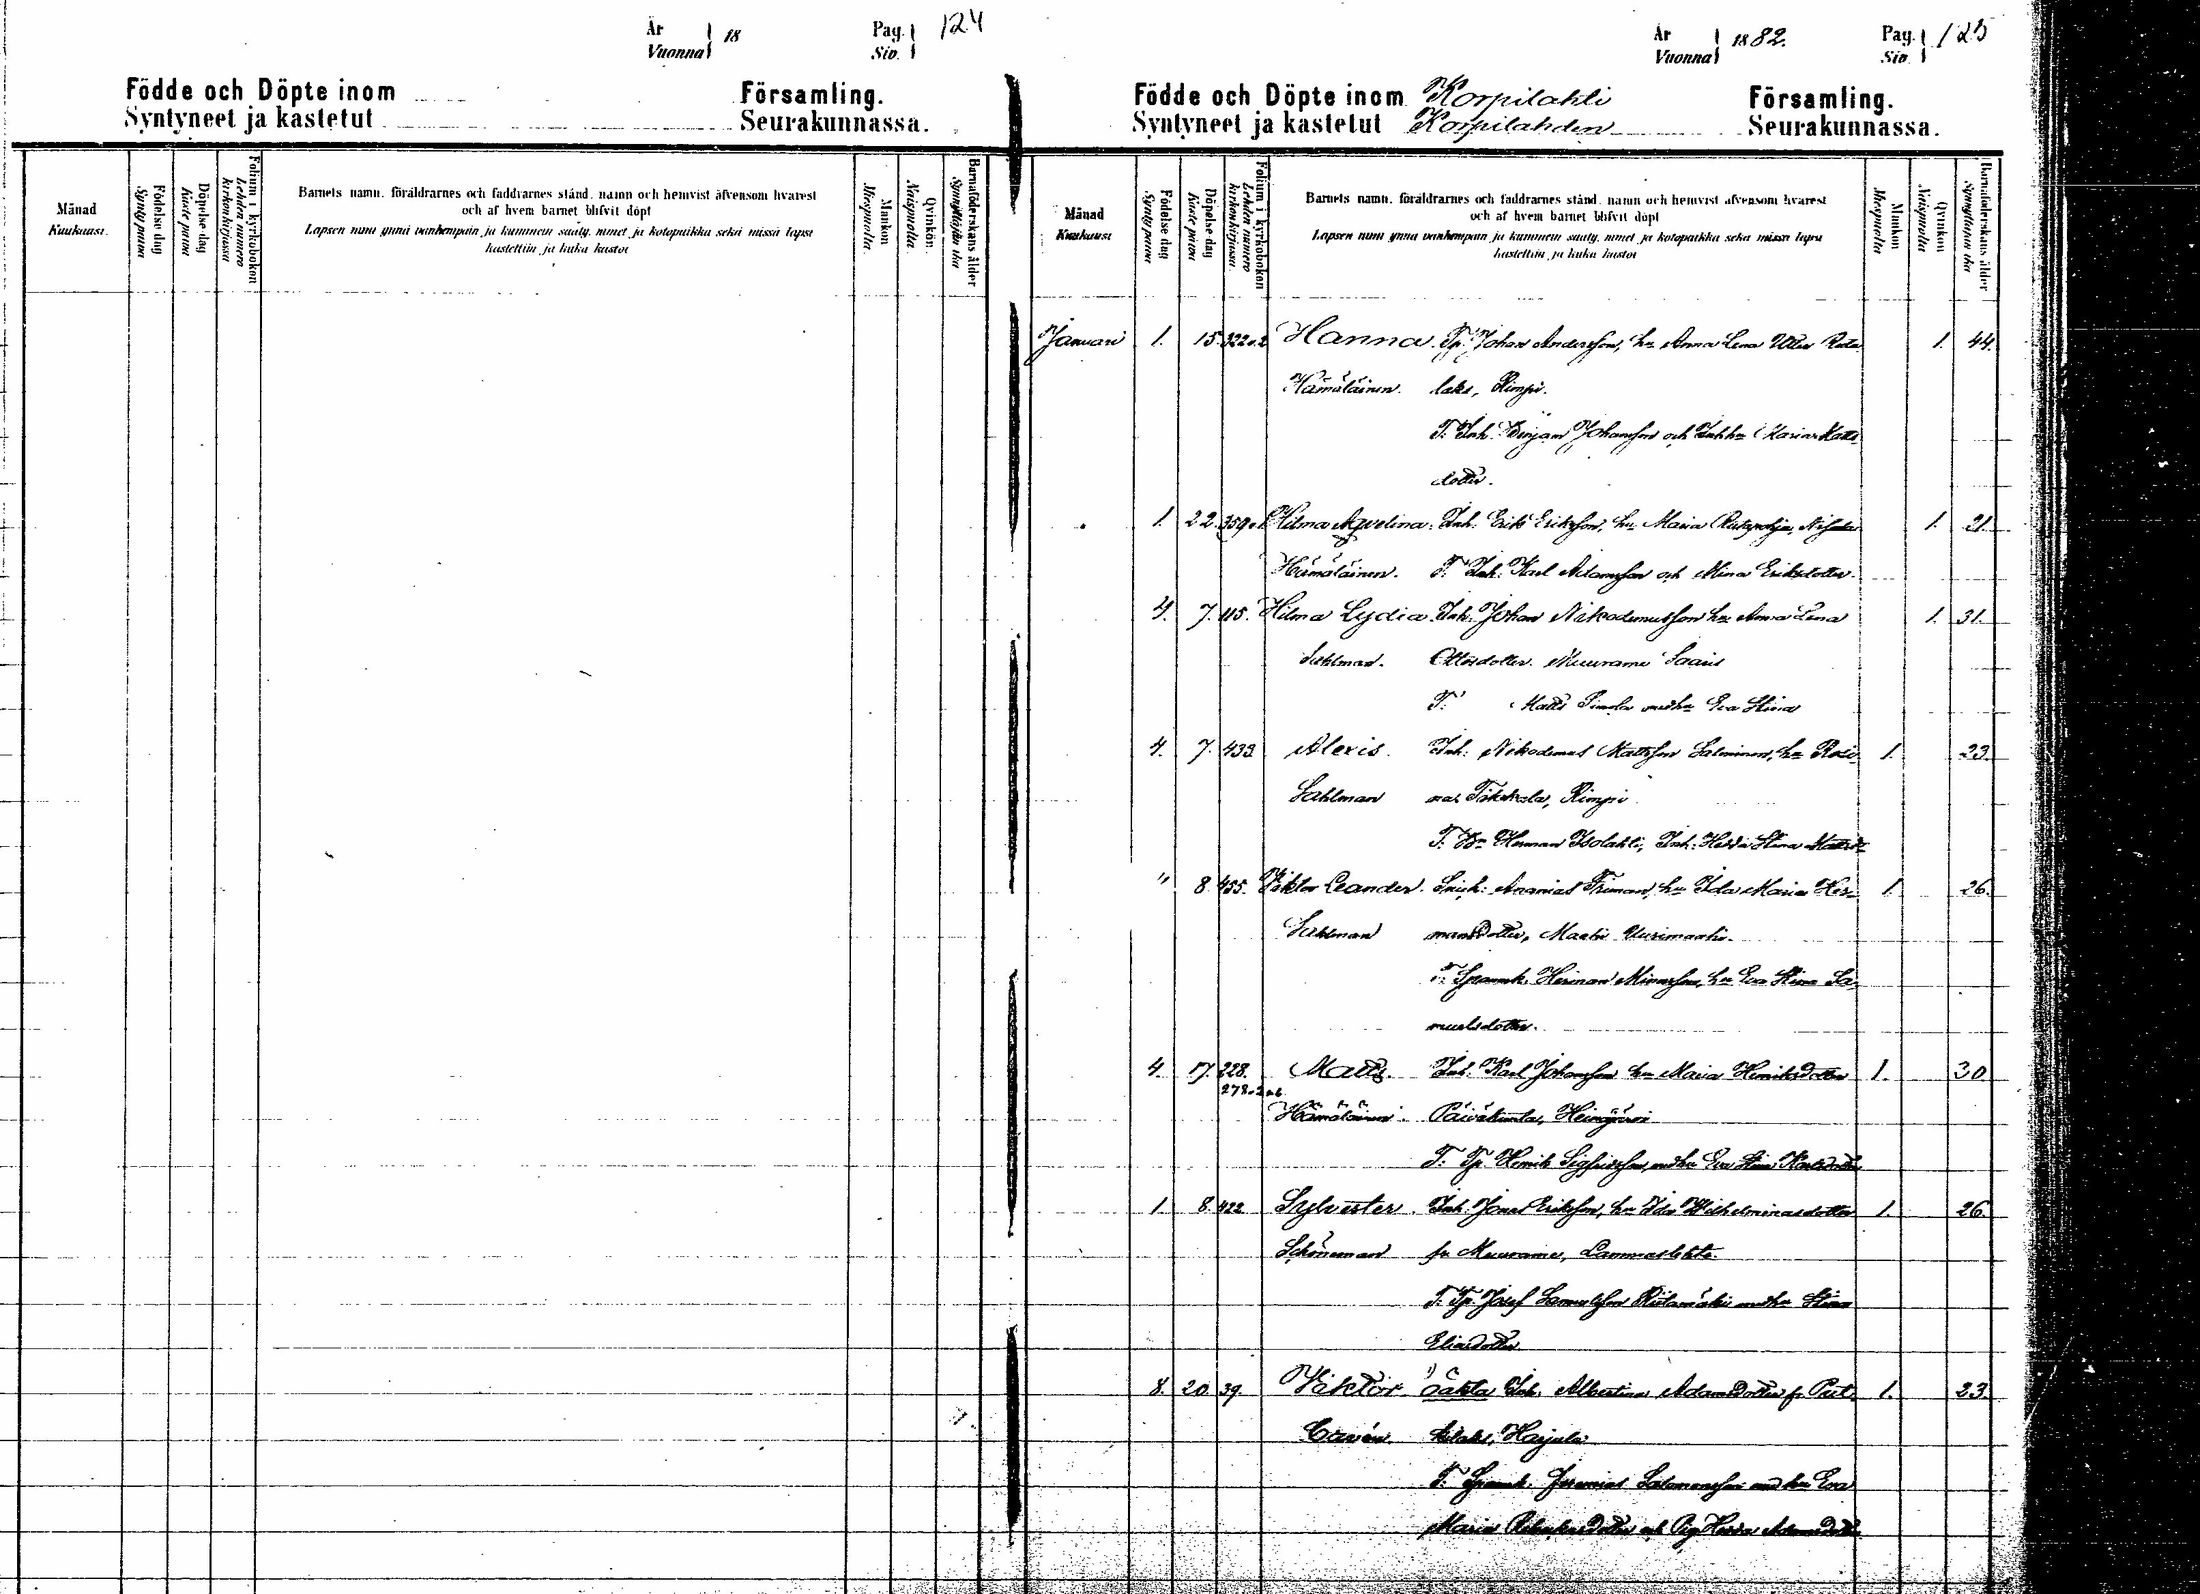 År Vuonna 18
Pag. Siv. 124
Födde och Döpte inom Församling.
Syntyneet ja kastetut Seurakunnassa.
Månad Kuukausi.
Födelse dag Syntypäivä
Döpelse dag Kastepäivä
Folium i kyrkoboken Lehden numero kirkonkirjassa
Barnets namn, föräldrarnes och faddrarnes stånd, namn och hemvist äfvensom hvarest
och af hvem barnet blifvit döpt
Lapsen nimi ynnä vanhempain ja kummein sääty, nimet ja kotopaikka sekä missä lapsi
kastettiin ja kuka kastoi
Mankön Miespuolia.
Qvinkön. Naispuolia.
Barnaföderskans ålder Synnyttäjän ikä
År Vuonna 1882.
Pag. Siv. 125
Födde och Döpte inom Korpilahti Församling.
Syntyneet ja kastetut Korpilahden Seurakunnassa.
Månad Kuukausi
Födelse dag Syntypäivä
Döpelse dag Kastepäivä
Folium i kyrkoboken Lehden numero kirkonkirjassa.
Barnets namn, föräldrarnes och faddrarnes stånd, namn och hemvist äfvensom hvarest
och af hvem barnet blifvit döpt
Lapsen nimi ynnä vanhempain ja kummein sääty, nimet ja kotopaikka sekä missä lapsi
kastettiin ja kuka kastoi
Mankön Miespuolia
Qvinkön Naispuolia
Barnaföderskans ålder Synnyttäjän ikä
Januari 1. 15. Hanna. Tp. Johan Andersson, hu Anna Lena 1. 44.
Hämäläinen. laks, Rimpi.
T. Inh. Benjam Johansson och Inhhu Maria Matts
dotter.
1. 22. 359 Hilma Aqvelina. Inh. Erik Eriksson, hu Maria Rutapohja, 1. 21.
Hämäläinen. T. Inh. Karl Adamsson och Mina Eriksdotter.
4. 7. 115. Hilma Lydia. Inh. Johan Nikodemusson hu Anna Lena 1. 31.
Sahlman. Ottosdotter. Muurame Saari
T. Matts med hu Eva Stina
4. 7. 433 Alexis. Inh. Nikodemus Mattsson Salminen, hu Rosi- 1. 23.
Sahlman na Tikkala, Rimpi
T. Herman Isolahti, Inh. Hedda Stina
" 8. 455. Viktor Leander. Ananias Friman, hu Ida Maria Her- 1. 26.
Sahlman mansdotter, Maatia Uurimaatia.
T. Spannk. Herman hu Eva Stina Sa-
muelsdotter.
4. 17. 228. Matts. Inh. Karl Johansson hu Maria Henriksdotter 1. 30
278
Hämäläinen. Päiväkunta, Heinjärvi
T. Tp. Henrik Sigfridsson, med hu Eva Stina Karlsdotter
1 8. 422 Sylvester. Inh. Jonas Eriksson, hu Ida Wilhelminasdotter 1. 26.
Schöneman fr Muurame, Lammaslahti.
T. Tp. Josef Samuelsson Riitamäki med hu Stina
Eliasdotter
8. 20. 39. Viktor Oäkta Inh. Albertina Adamsdotter fr Put- 1. 23.
kilaks, Harjula
T. Spannk. Jeremias Salomonsson med hu Eva
Maria och Pig. Hedda Adamsdotter